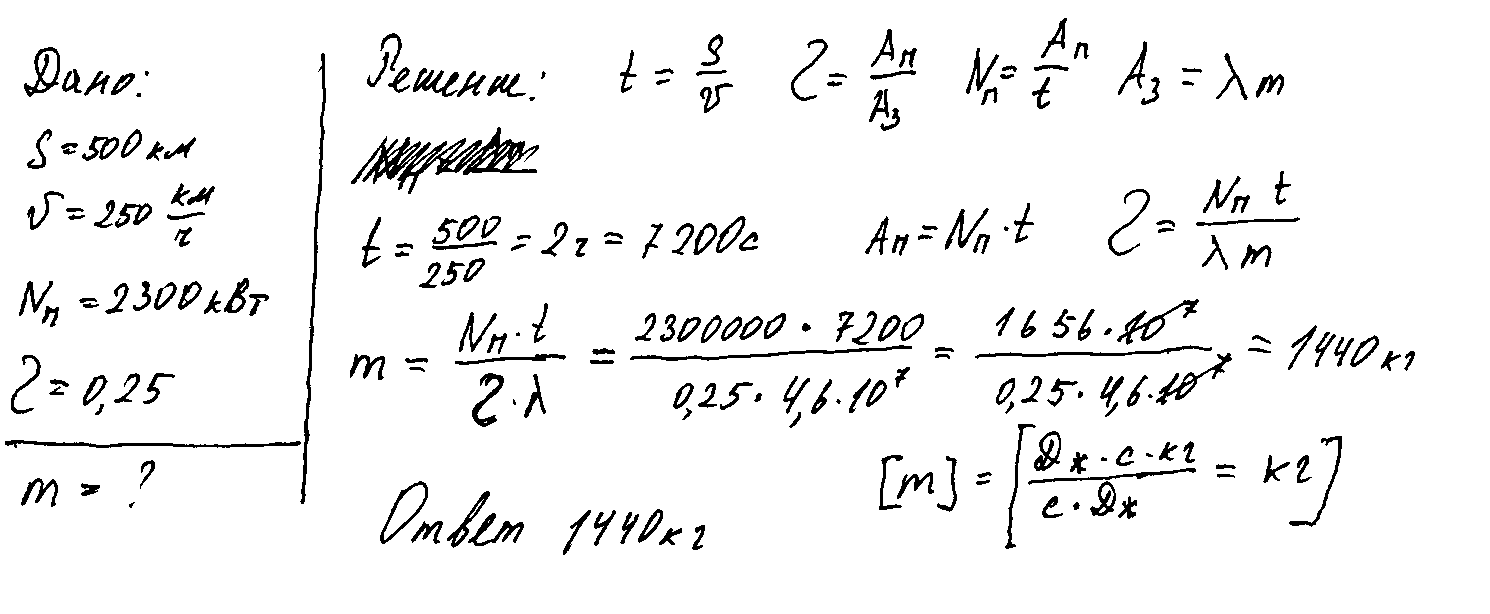 Дано:
S = 500 км
v = 250 км/ч
Nп = 2300 кВт
η = 0,25
m = ?
Решение: t = S/v η = Aп/Aз Nп = Aп/t Aз = λm
t = 500/250 = 2ч = 7200с Aп = Nп · t η = Nп t/λm
m = Nп · t/η · λ = 2300000 · 7200/0,25 · 4,6 · 10⁷ = 1656 · 10⁷/0,25 · 4,6 · 10⁷ = 1440 кг
[m] = [Дж · с · кг/с · Дж = кг]
Ответ 1440 кг